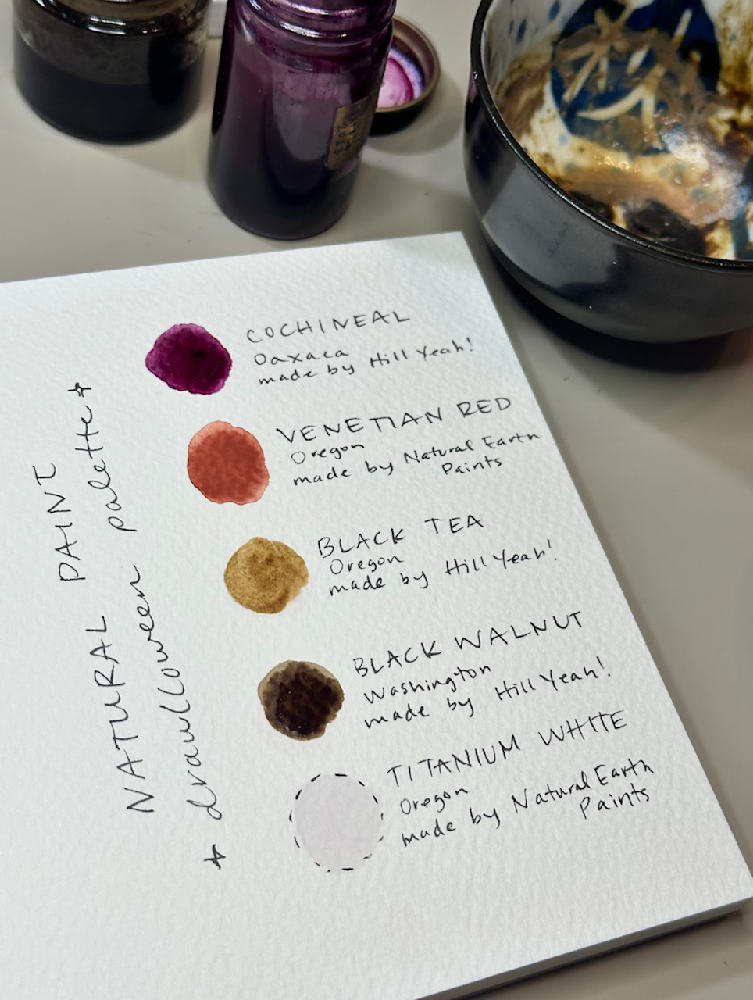 NATURAL PAINT
drawlloween palette
COCHINEAL
Oaxaca
made by Hill Yeah!
VENETIAN RED
Oregon
made by Natural Earth
Paints
BLACK TEA
Oregon
made by Hill Yeah!
BLACK WALNUT
Washington
made by Hill Yeah!
TITANIUM WHITE
Oregon
made by Natural Earth
Paints